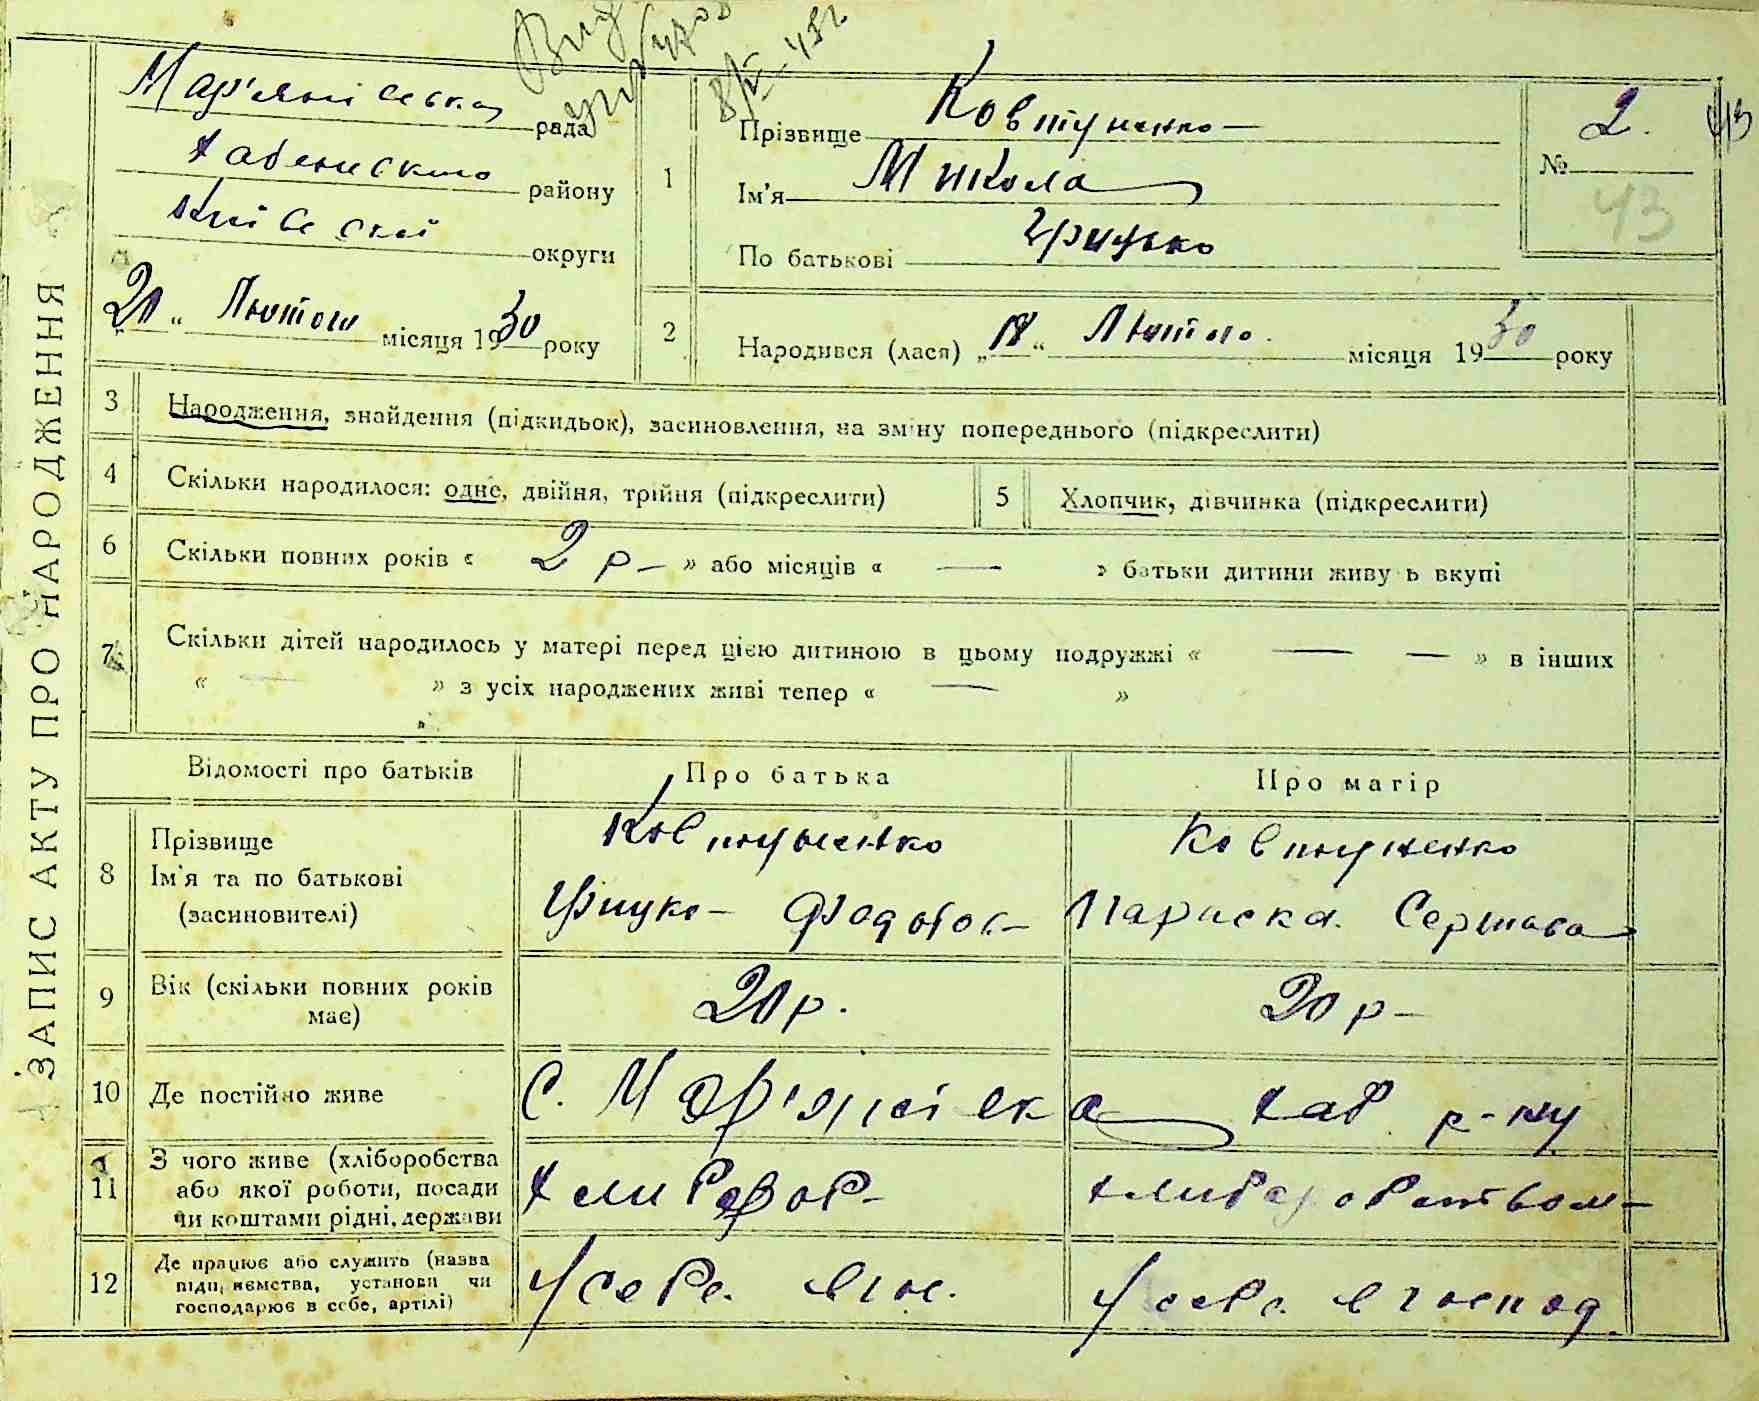 ЗАПИС АКТУ ПРО НАРОДЖЕННЯ
Мар'янівська рада
Хабенського району
Київської округи
20 " Лютого місяця 1930 року
1
Прізвище Ковтуненко
Ім'я Микола
По батькові Грицько
№ 2.
43
43
2
Народився (лася) „18“ Лютого. місяця 1930 року
3 Народження, знайдення (підкидьок), засиновлення, на зміну попереднього (підкреслити)
4 Скільки народилося: одне, двійня, трійня (підкреслити)
5 Хлопчик, дівчинка (підкреслити)
6 Скільки повних років « 2 р — » або місяців « — » батьки дитини живуть вкупі
7 Скільки дітей народилось у матері перед цією дитиною в цьому подружжі « — — » в інших
« — » з усіх народжених живі тепер « — »
Відомості про батьків Про батька Про матір
8
Прізвище
Ім'я та по батькові
(засиновителі)
Ковтуненко
Грицко Федотов
Ковтуненко
Параска
9 Вік (скільки повних років
має)
20 р.
20 р
10 Де постійно живе
С. Мар'янівка Хаб р-ну
11
З чого живе (хліборобства
або якої роботи, посади
чи коштами рідні, держави
Хлибороб
хлиборобством
12
Де працює або служить (назва
підприємства, установи чи
господарює в себе, артілі)
У себе в гос.
У себе в господ